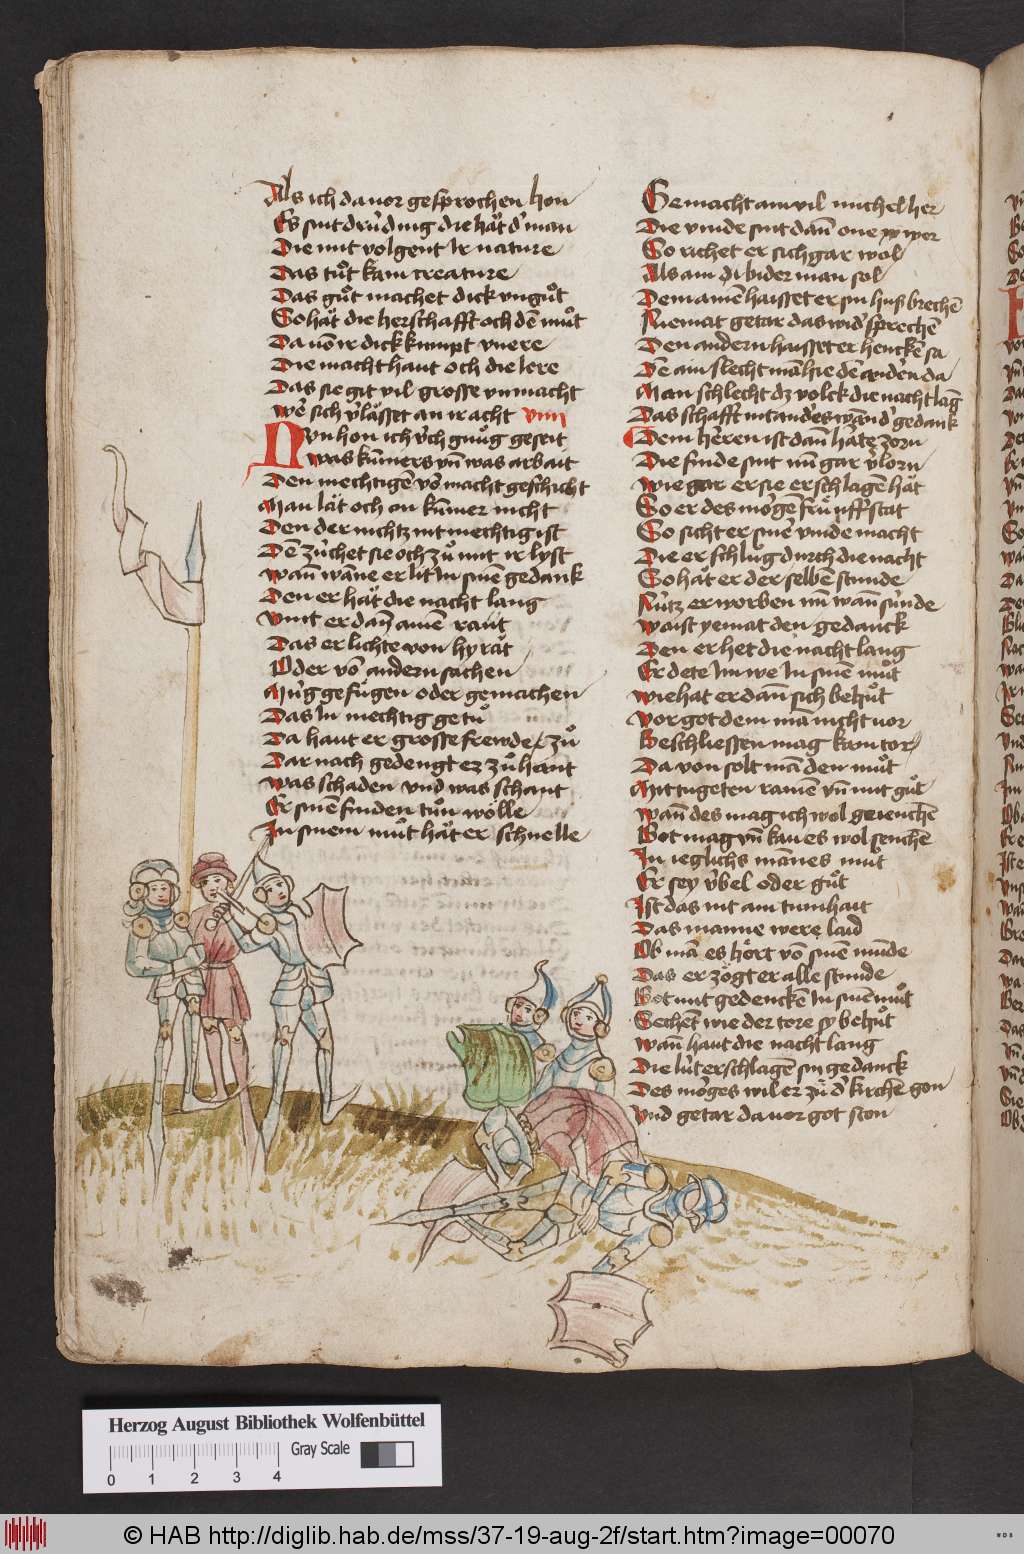 Als ich da vor gesprochen hon
Es sint drú ding die hät d' man
Die nit volgent Ir nature
Das tůt kain creature
Das gůt machet dick vngůt
So hät die herschafft och dē můt
Da vō ir dick kumpt vnere
Die macht haut och die lere
Das sie git vil grosse vnmacht
wē sich v'lässet an ir acht
Nvn hon ich v́ch gnůg geseit
was kūmers vn̄ was arbait
Den mechtigē vō macht geschicht
Man lät och an kūmer nicht
Den der nichtz nit mechtig ist
Dē zúchet sie och zů mit ir lyst
wan̄ wäne er lit In sinē gedank
Den er hät die nacht lang
vmt er dan̄ ainē raut
Das er lichte von hy rät
Oder vō andern sachen
Múg gefůgen oder gemachen
Das In mechtig getů
Da haut er grosse frewde zů
Dar nach gedengt ez zů hant
was schaden vnd was schant
Er sinē finden tůn wölle
In sinem můt hät er schnelle
Gemacht ain vil michel her
Die vinde sint dan̄ one wer
So richet er sich gar wol
Als ain bider man sol
Dem ainē haisset er sin huß brechē
Niemat getar das wid' sprechē
Den andern haisset er henckē sa
Dē ain slecht mā hie dē andern da
Man schlecht dz volck die nacht lāg
Das schafft nit andes wān d' gedank
Dem hēren ist dan̄ häte zorn
Die finde sint nū gar v'lorn
wie gar er sie erschlagē hät
So er des morgē frů vff stat
So sicht er sinē vinde macht
Die er schlůg durch die nacht
So hät er der selbē stunde
Nútz erworben nū wan̄ súnde
waist yemat den gedanck
Den er het die nacht lang
Er dete Im we In sinē můt
wie hat er dan̄ sich behůt
vor got dem mā nicht vor
Beschliessen mag kain tor
Da von solt mā den můt
Mit tugeten ramē vn̄ mit gůt
wan̄ des mag ich wol geienchē
Got mag vn̄ kan es wol senchē
In ieglichs mānes mut
Er sey v́bel oder gůt
Ist das nit ain tumhait
Das manne were laid
Ob mā es hort vō sinē mūde
Das er zögt er alle stunde
Got mit gedenckē In sinē můt
Sechēt wie der tore sy behůt
wan̄ haut die nacht lang
Die lút erschlagē sin gedanck
Des morges wil er zů d' kirchē gon
vnd getar da vor got ston
Herzog August Bibliothek Wolfenbüttel
Gray Scale
0 1 2 3 4
© HAB http://diglib.hab.de/mss/37-19-aug-2f/start.htm?image=00070